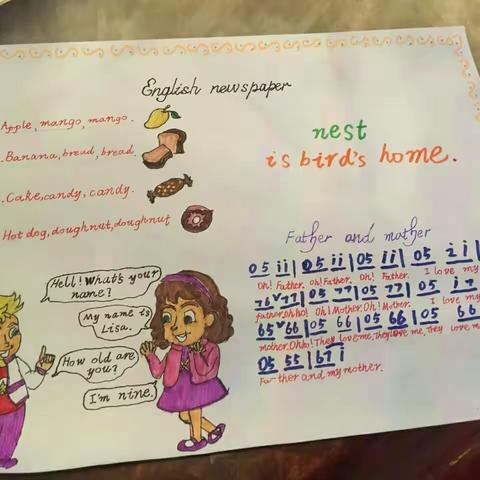 English newspaper
Apple, mango, mango.
.Banana, bread, bread.
.Cake, candy, candy.
Hot dog, doughnut, doughnut
nest
is bird's home.
Father and mother
05 ii | 05 ii | 05 ii | 05 i i |
Oh! Father. Oh! Father. Oh! Father. I love my
father. Oh ho! Oh! Mother. Oh! Mother. I love my
65 66 | 05 66 | 05 66 | 05 66
mother. Ohho! They love me, They love me, They love me
05 55 | 67 i
Father and my mother.
Hell! What's your
name?
My name is
Lisa.
How old are
you?
I'm nine.